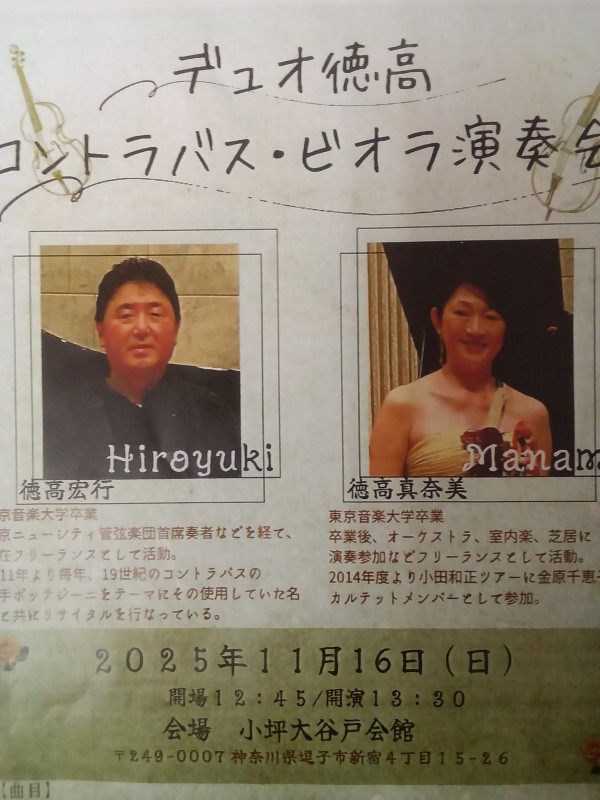 デュオ徳高
コントラバス・ビオラ演奏会
Hiroyuki
徳高宏行
京音楽大学卒業
京ニューシティ管弦楽団首席奏者などを経て、
在フリーランスとして活動。
11年より毎年、19世紀のコントラバスの
手ボッテジーニをテーマにその使用していた名
と共にリサイタルを行なっている。
Manam
徳高真奈美
東京音楽大学卒業
卒業後、オーケストラ、室内楽、芝居に
演奏参加などフリーランスとして活動。
2014年度より小田和正ツアーに金原千恵子
カルテットメンバーとして参加。
2025年11月16日（日）
開場12：45/開演13：30
会場 小坪大谷戸会館
〒249-0007神奈川県逗子市新宿4丁目15-26
【曲目】